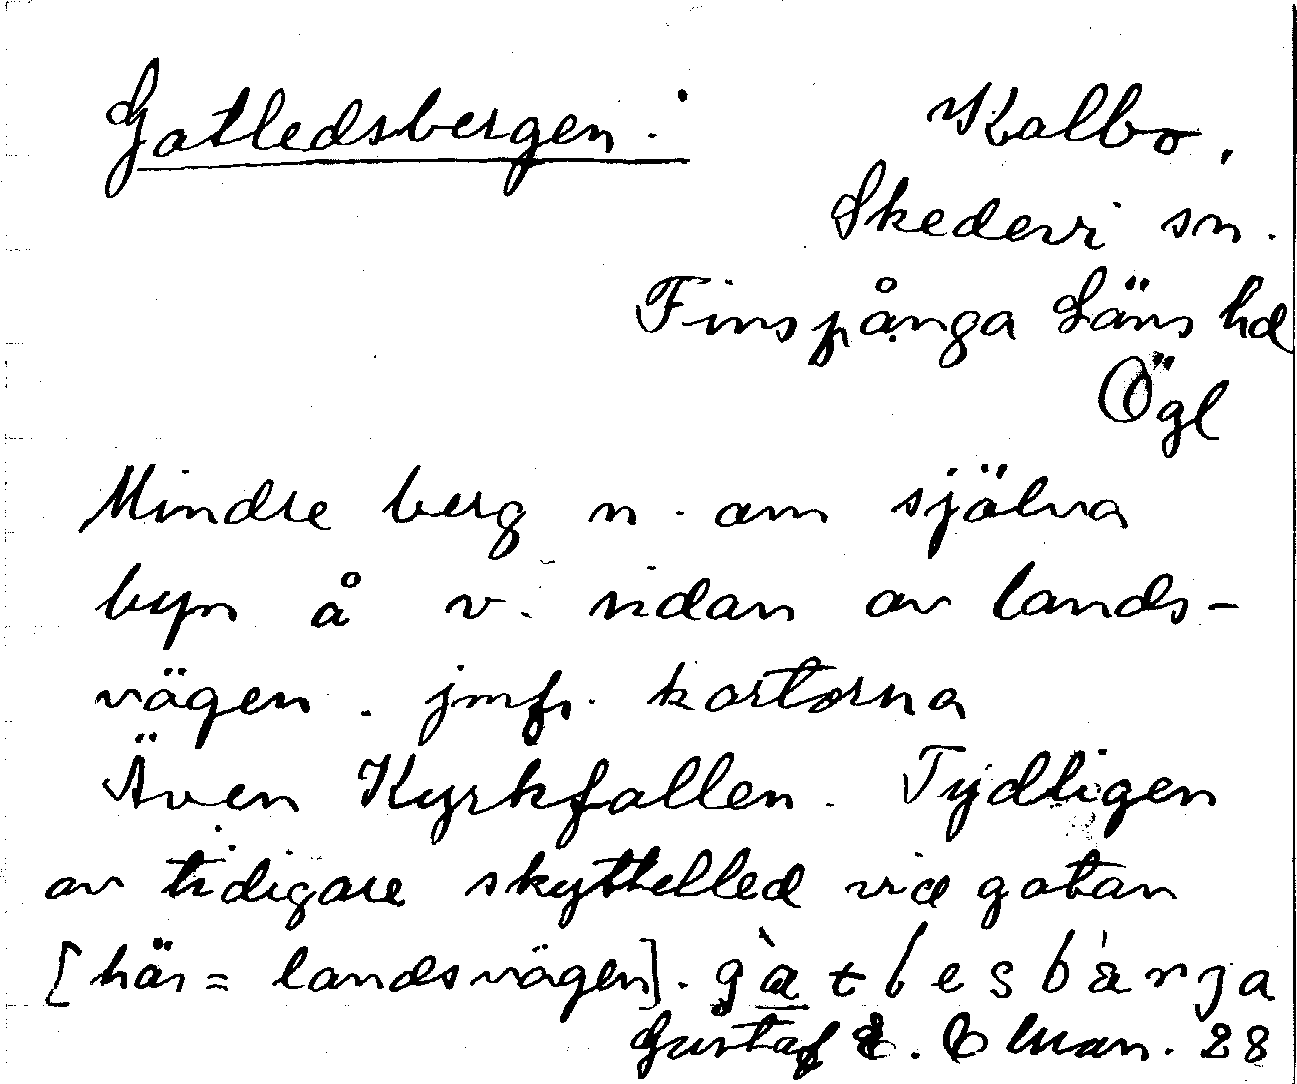 Gatledsbergen.
Kalbo.
Skedevi sn.
Finspånga Läns hd
Ögl
Mindre berg n. om själva
byn å v. sidan av lands-
vägen. jmfr. kartorna
Även Kyrkfallen. Tydligen
av tidigare skyttelled vid gatan
[här = landsvägen]. gàtlesbàrja
Gustaf E. Elman. 28